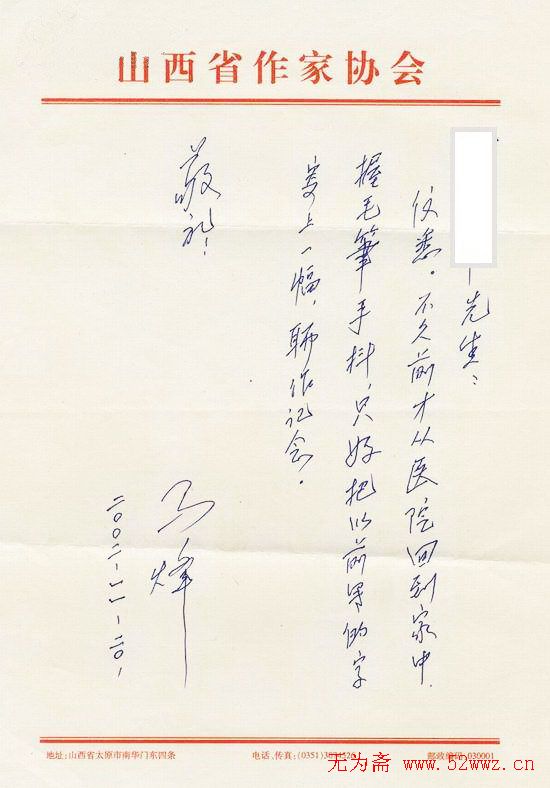 山西省作家协会
先生：
伩悉。不久前才从医院回到家中.
握毛筆手抖，只好把以前写的字
寄上一幅，聊作记念。
敬礼！
马烽
二〇〇二-一一-二〇.
地址:山西省太原市南华门东四条
电话、传真:(0351)
邮政编码:030001
无为斋 www.52wwz.cn